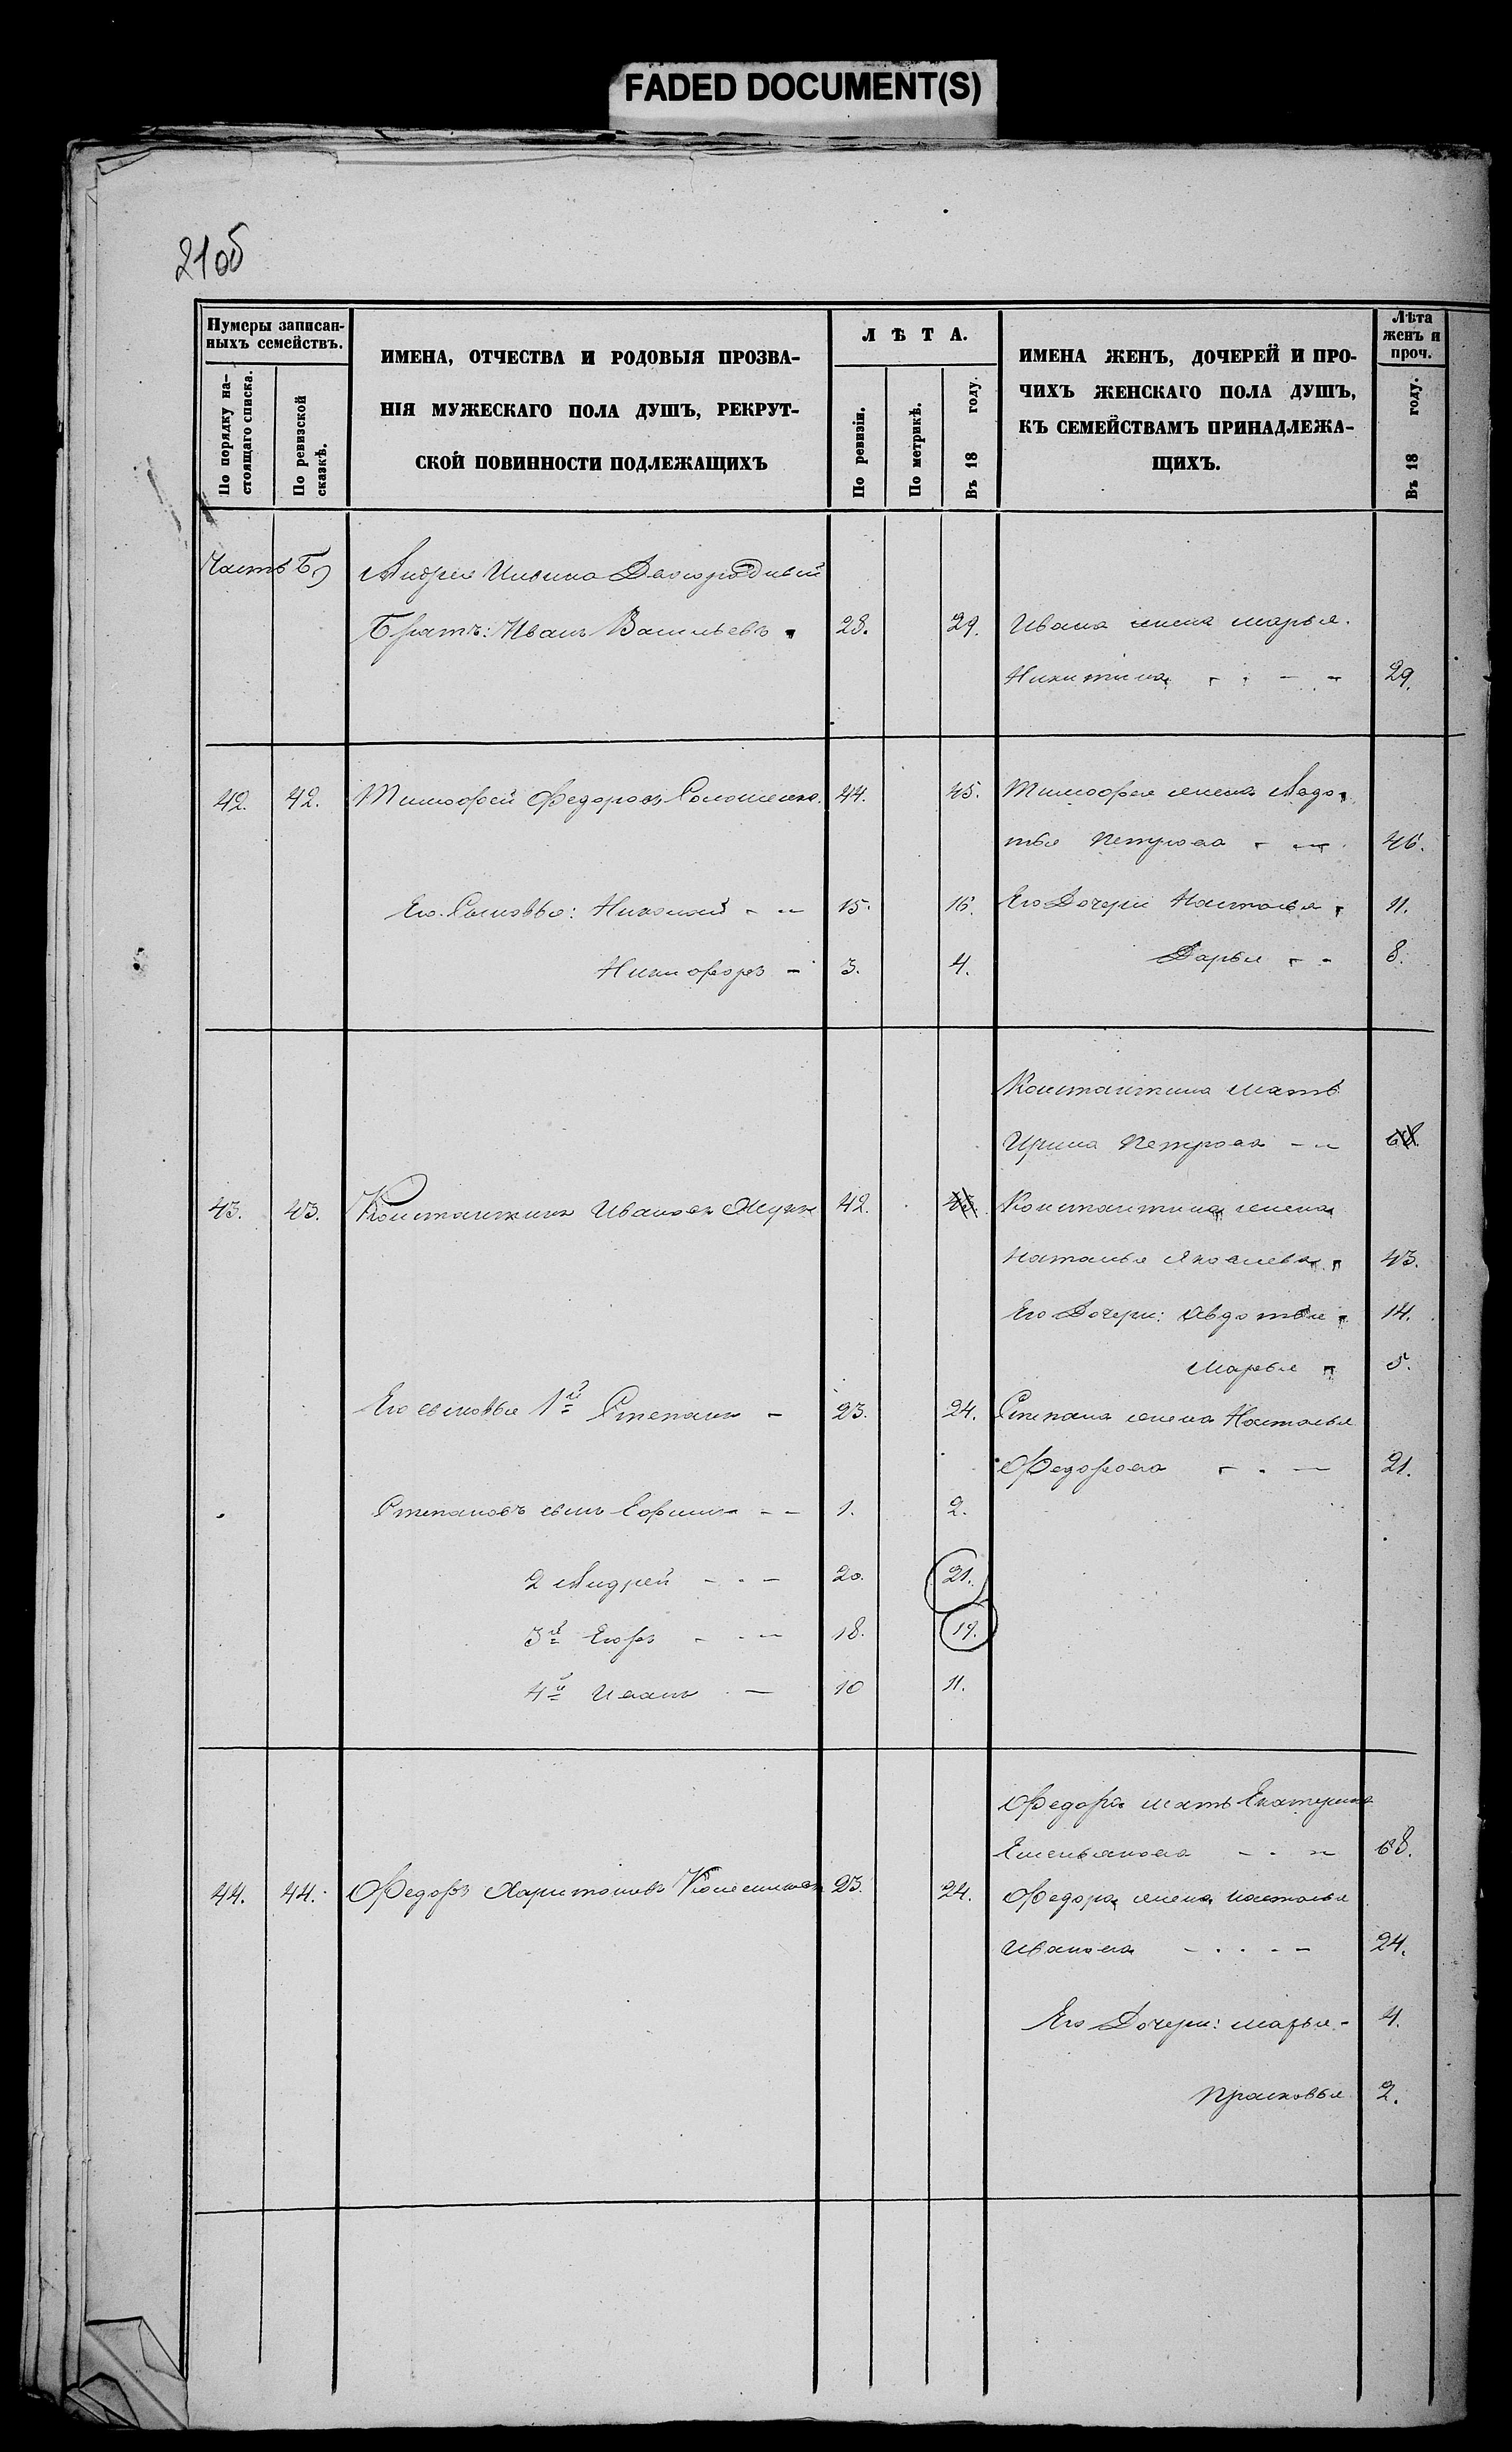 FADED DOCUMENT(S)
21об
Нумеры записан-
ныхъ семействъ.
По порядку на-
стоящаго списка.
По ревизской
сказкѣ.
ИМЕНА, ОТЧЕСТВА И РОДОВЫЯ ПРОЗВА-
НІЯ МУЖЕСКАГО ПОЛА ДУШЪ, РЕКРУТ-
СКОЙ ПОВИННОСТИ ПОДЛЕЖАЩИХЪ
ЛѢТА.
По ревизіи.
По метрикѣ.
Въ 18 году.
ИМЕНА ЖЕНЪ, ДОЧЕРЕЙ И ПРО-
ЧИХЪ ЖЕНСКАГО ПОЛА ДУШЪ,
КЪ СЕМЕЙСТВАМЪ ПРИНАДЛЕЖА-
ЩИХЪ.
Лѣта
женъ и
проч.
Въ 18 году.
Часть Б)
Андрея
Братъ: Иванъ Васильевъ 28. 29. Ивана жена Марья.
Никитина 29.
42. 42. Тимофей Федоровъ 44. 45. Тимофея жена Авдо-
тья Петрова 46.
Его Сыновья: Николай 15. 16. Его Дочери Настасья 11.
Никифоръ 3. 4. Дарья 8.
Константина мать
Ирина Петрова 68.
43. 43. Константинъ Ивановъ 42. 43. Константина жена
Наталья Яковлева 43.
Его Дочери: Авдотья 14.
Марья 5.
Его сыновья 1й Степанъ 23. 24. Степана жена Настасья
Федорова 21.
Степановъ сынъ Ефимъ 1. 2.
2 Андрей 20. 21.
3й Егоръ 18. 19.
4й Иванъ 10 11.
Федора мать Екатерина
Емельянова 68.
44. 44. Федоръ Харитоновъ 23. 24. Федора жена Настасья
Иванова 24.
Его Дочери: Марья 4.
Прасковья 2.